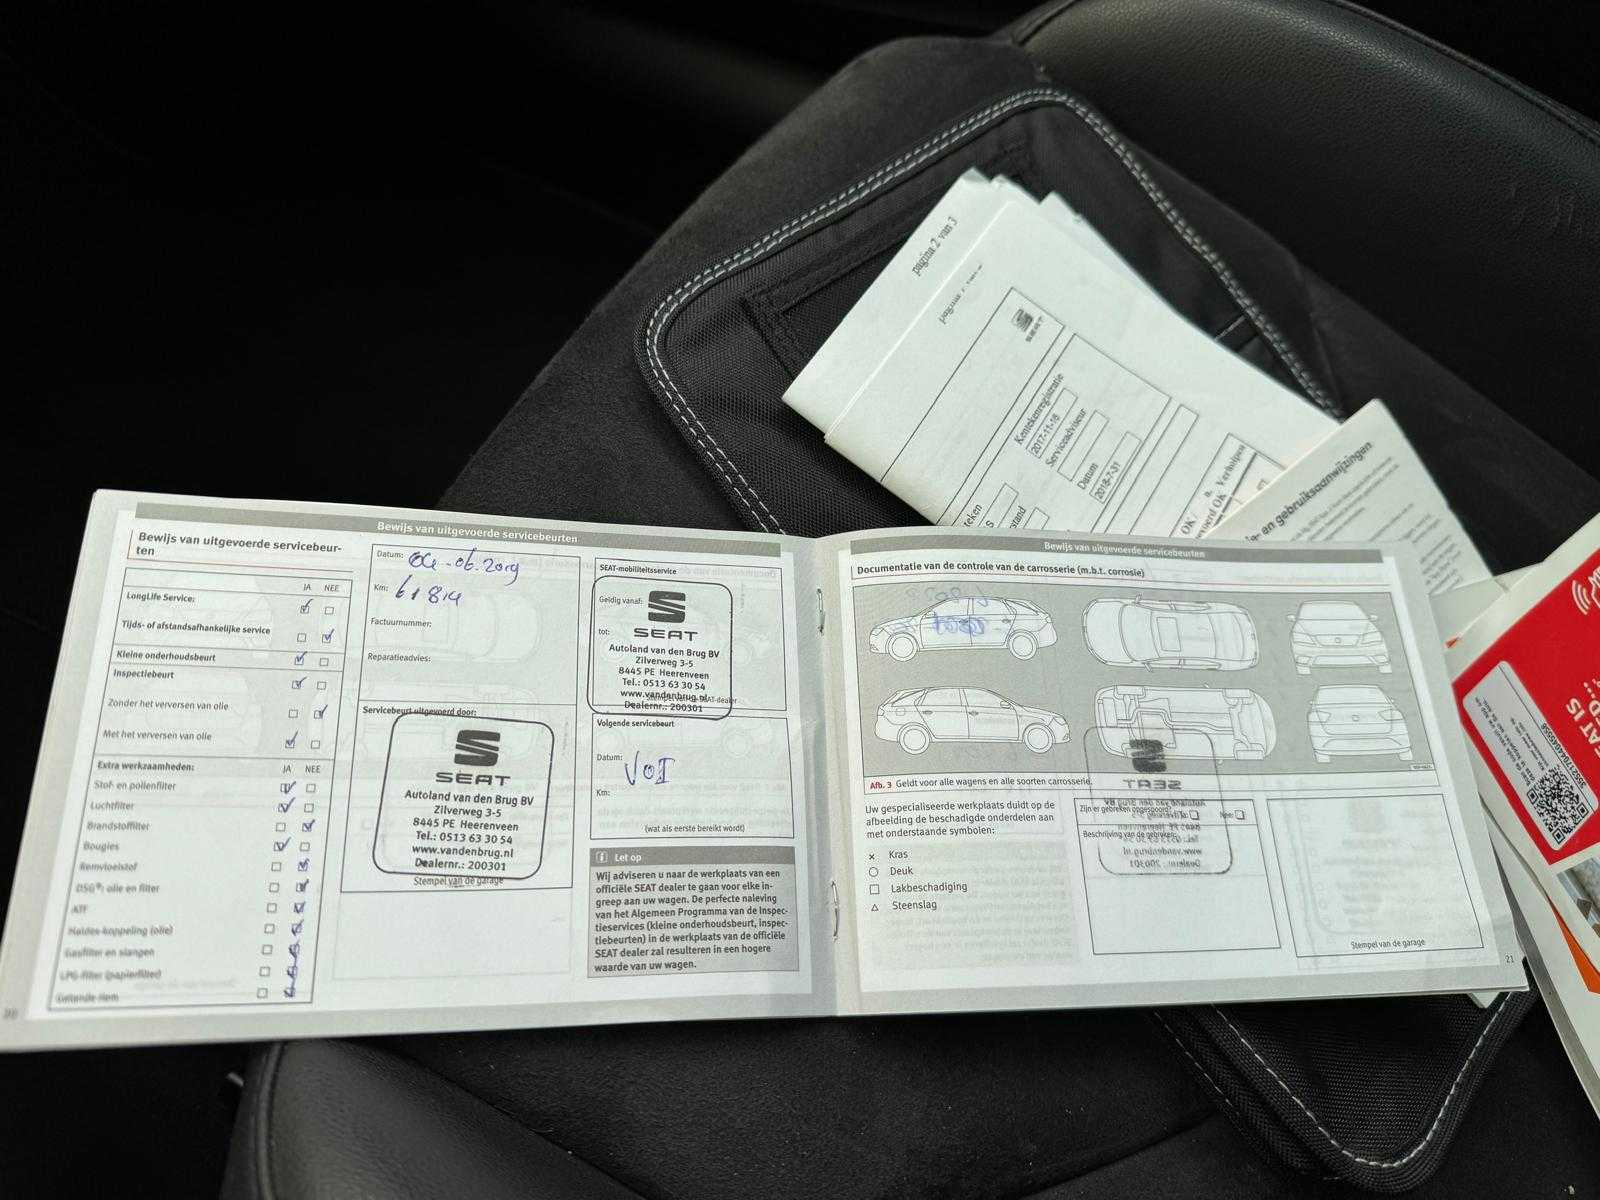 pagina 2 van 3
SEAT
Kentekenregistratie
2017-11-16
Serviceadviseur
Datum
2018-7-31
a. Verholpen
OK /
- en gebruiksaanwijzingen
Bewijs van uitgevoerde servicebeurten
Bewijs van uitgevoerde servicebeur-
ten
JA NEE
LongLife Service:
Tijds- of afstandsafhankelijke service
Kleine onderhoudsbeurt
Inspectiebeurt
Zonder het verversen van olie
Met het verversen van olie
Extra werkzaamheden: JA NEE
Stof- en pollenfilter
Luchtfilter
Brandstoffilter
Bougies
Remvloeistof
DSG®: olie en filter
ATF
Haldex-koppeling (olie)
Gasfilter en slangen
LPG-filter (papierfilter)
Getande riem
20
Datum:
Km:
Factuurnummer:
Reparatieadvies:
Servicebeurt uitgevoerd door:
SEAT
Autoland van den Brug BV
Zilverweg 3-5
8445 PE Heerenveen
Tel.: 0513 63 30 54
www.vandenbrug.nl
Dealernr.: 200301
Stempel van de garage
SEAT-mobiliteitsservice
Geldig vanaf:
tot:
SEAT
Autoland van den Brug BV
Zilverweg 3-5
8445 PE Heerenveen
Tel.: 0513 63 30 54
www.vandenbrug.nl
Dealernr.: 200301
Volgende servicebeurt
Datum:
Km:
(wat als eerste bereikt wordt)
i Let op
Wij adviseren u naar de werkplaats van een
officiële SEAT dealer te gaan voor elke in-
greep aan uw wagen. De perfecte naleving
van het Algemeen Programma van de Inspec-
tieservices (kleine onderhoudsbeurt, inspec-
tiebeurten) in de werkplaats van de officiële
SEAT dealer zal resulteren in een hogere
waarde van uw wagen.
Bewijs van uitgevoerde servicebeurten
Documentatie van de controle van de carrosserie (m.b.t. corrosie)
Afb. 3 Geldt voor alle wagens en alle soorten carrosserie.
Uw gespecialiseerde werkplaats duidt op de
afbeelding de beschadigde onderdelen aan
met onderstaande symbolen:
Kras
Deuk
Lakbeschadiging
Steenslag
Zijn er gebreken opgespoord?
Ja: Nee:
Beschrijving van de gebreken:
Stempel van de garage
21